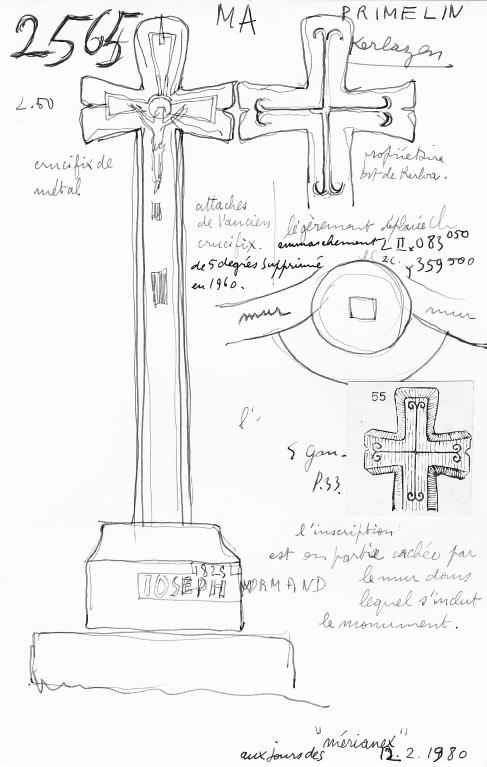 2565
MA
PRIMELIN
Kerlazen
2.50
crucifix de
métal
propriétaire
attaches
de l'ancien
crucifix.
légèrement déplacée
emmarchement
de 5 degrés supprimé
en 1960.
II x 083 050
y 359 500
mur
mur
l'
55
P.33
l'inscription
est en partie cachée par
le mur dans
lequel s'inclut
le monument.
1829
IOSEPH NORMAND
"mérianex"
aux jours des 12.2.1980